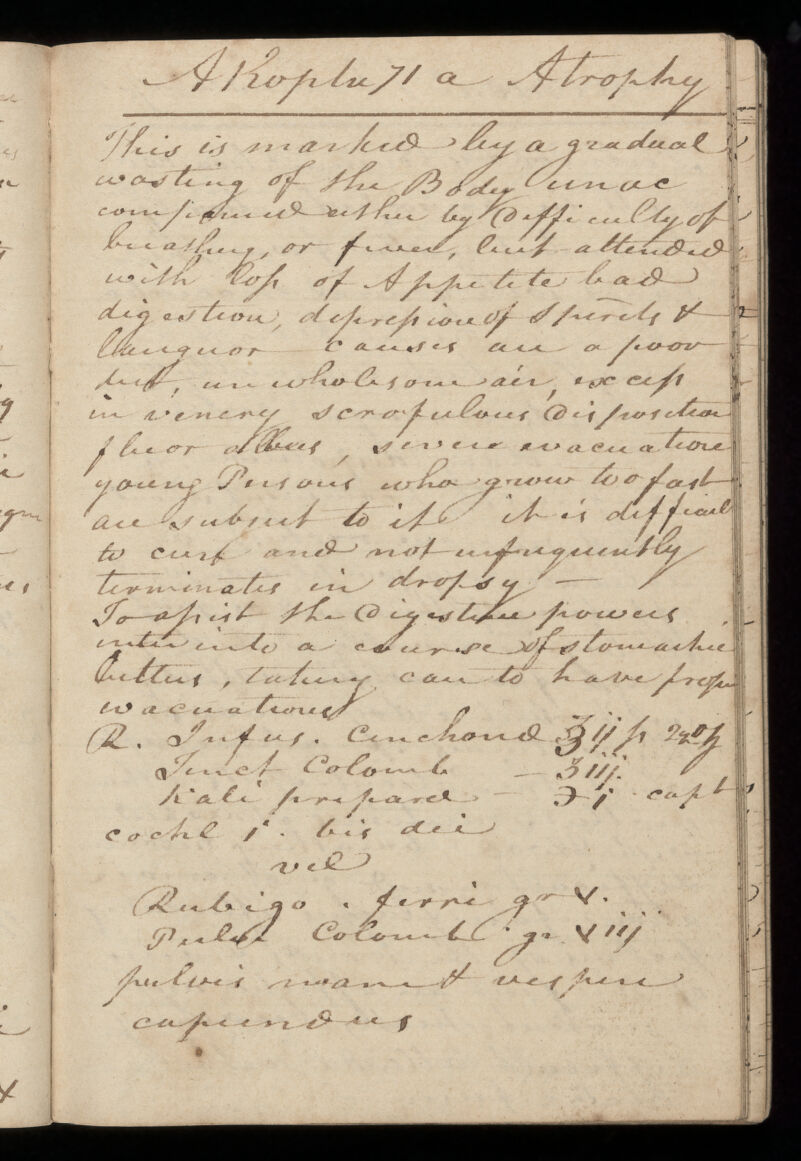 Atrophy
This is marked by a gradual
wasting of the Body unac
companied either by Difficulty of
breathing, or fever, but attended
with loss of Appetite bad
digestion, depression of Spirits &
languor causes are a poor
diet, unwholesome air, excess
in venery scrofulous Disposition
fluor albus, severe evacuations
young Persons who grow too fast
are subject to it it is difficult
to cure and not unfrequently
terminates in dropsy —
To assist the Digestive powers
enter into a course of stomachic
bitters, taking care to have proper
evacuations
R. Infus. Cinchonæ ℥ij
Tinct Colomb — ʒiij.
Kali prepard — ℈j capt
cochl j. bis die
vel
Rubigo. ferri gr x.
Pulv Colomb. gr xiij
pulvis mane & vespere
capiendus